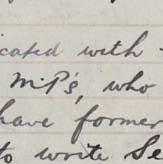 icated with
M.P's, who
have former
to write